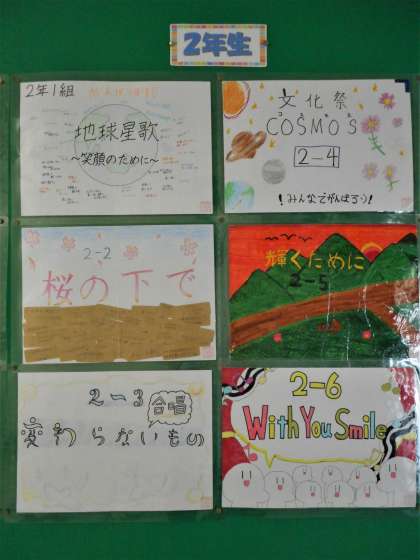 2年生
2年1組
地球星歌
～笑顔のために～
文化祭
COSMOS
2-4
!みんなでがんばろう!
2-2
桜の下で
輝くために
2-5
2-3
合唱
変わらないもの
2-6
With You Smile